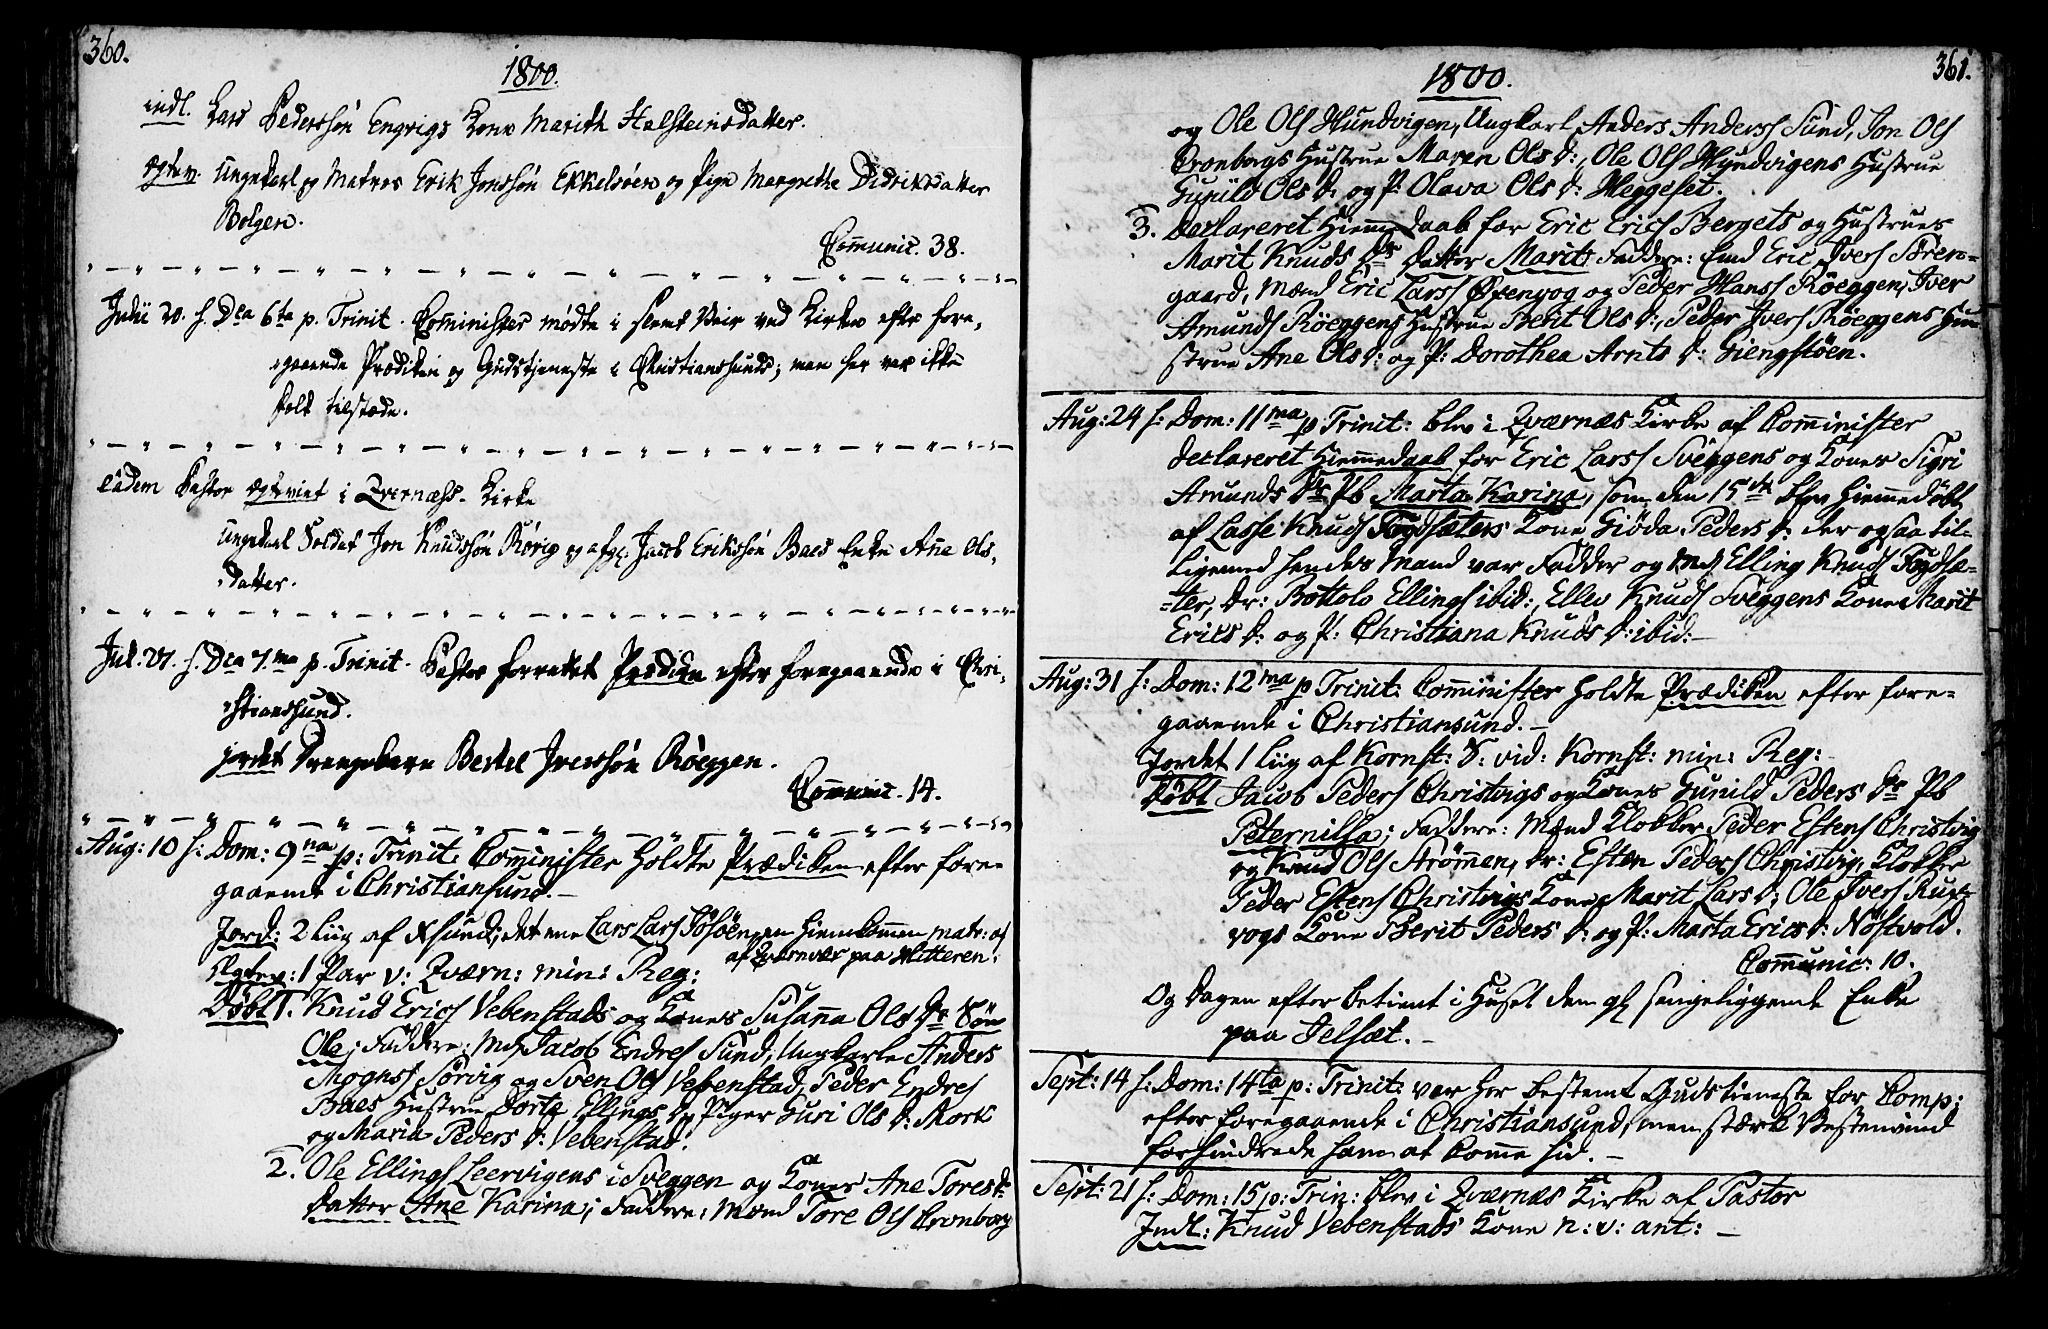 360.
1800.
indl. Lars Pederssøn Engvigs Kone Marith Halsteinsdatter.
Egtev. Ungekarl og Matros Erik Jonssøn Ekkelsøen og Pige Margrethe Didriksdatter
Bolgen.
Com̄unic. 38.
Julii 20. s. Dca 6ta p. Trinit. Com̄inister mødte i slemt Veir ved Kirken efter fore-
gaaende Prædiken og Gudstjeneste i Christianssunds; men her var ikke
Folk tilstæde.
Eadem Pastor Egteviet i Qvernæss. Kirke
Ungekarl Soldat Jon Knudssøn Rørvig og afg. Jacob Erikssøn Baes Enke Ane Ols-
datter.
Jul: 27. s. Dca 7.ma p. Trinit. Pastor forrettet Prediken efter foregaaende i Chri-
stianssund.
jordet Drengebarn Bertel Iverssøn Røeggen.
Com̄unic. 14.
Aug: 10 s: Dom: 9na p: Trinit: Com̄inister holdte Prædiken efter fore-
gaaende i Christiansund.
Jord: 2 Liig af Xsund; det ene Lars Lars Jøsøen, en hiemkom̄en matr: af
af Qværnvær paa Hitteren.
Egtev: 1 Par v: Qværn: min: Reg:
Døbt 1. Knud Erics Vebenstads og Kones Susan̄a Ols Dr Søn
Ole; Faddere: Md Jacob Endres Sund, Ungkarle Anders
Mogns Sørvig og Sven Ols Vebenstad, Peder Endres
Baes Hustrue Dorte Ellings Dr Piger Guri Ols D: Mork
og Maria Peders D: Vebenstad.
2. Ole Ellings Leervigens i Sveggen og Kones Ane Tores D:
Datter Ane Karina; Faddere: Mænd Tore Ols Cronborg
361.
1800.
og Ole Ols Hundvigen, Ungkarl Anders Anders Sund, Jon Ols
Cronborgs Hustrue Maren Ols D:, Ole Ols Hundvigens Hustrue
Gunild Ols D. og P: Olava Ols D: Heggeset.
3. Declareret Hiem̄edaab for Eric Erics Bergets og Hustrues
Marit Knuds Dr Datter Marit; Faddere: Enkd Eric Ivers Børen-
gaard, Mænd Eric Lars Øxenvog og Peder Hans Røeggen, Iver
Amunds Røeggens Hustrue Berit Ols D:, Peder Ivers Røeggens Hu-
strue Ane Ols D: og P: Dorothea Arnts D: Giengstøen.
Aug: 24 s: Dom: 11ma p Trinit: blev i Qværnæs Kirke af Com̄inister
declareret Hiem̄edaab for Eric Lars Sveggens og Kones Sigri
Amunds Dr Pb Marta Karina, som den 15de blev hiem̄edøbt
af Lasse Knuds Fogdsæters Kone Giøda Peders D: der ogsaa til-
ligemed hendes Mand var Fadder og Md Elling Knuds Fogdsæ-
ter, Dr: Bottolv Ellings ibid:, Ellev Knuds Sveggens Kone Marit
Erics D: og P: Christiana Knuds D: ibid:
Aug: 31 s: Dom: 12ma p Trinit: Com̄inister holdte Prædiken efter fore-
gaaende i Christiansund.
Jordet 1 Liig af Kornst: S: vid: Kornst: min: Reg:
Døbt Jacob Peders Christvigs og Kones Gunild Peders Dr Pb
Peternilla; Faddere: Mænd Klokker Peder Estens Christvig
og Knud Ols Strøm̄en, Dr: Esten Peders Christvig, Klokker
Peder Estens Christvigs Kone Marit Lars D: Ole Ivers Rux-
vogs Kone Berit Peders D: og P: Marta Erics D: Nøstvold.
Com̄unic: 10.
Og Dagen efter betient i Huset den gl sengeliggende Enke
paa Jelsæt.
Sept: 14 s: Dom: 14ta p: Trinit: var her bestemt Gudstieneste for Comp:
efter foregaaende i Christiansund, men stærk Vestenvind
forhindrede ham at kom̄e hid.
Sept: 21 s: Dom: 15 p: Trin: blev i Qværnæs Kirke af Pastor
Indl: Knud Vebenstads Kone n: v: ant: